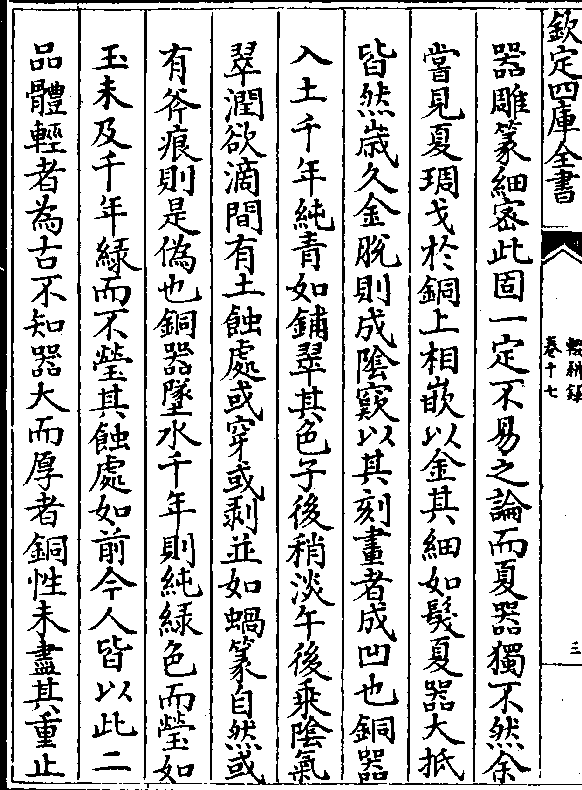 欽定四庫全書
輟耕錄
卷十七
三
器雕篆細密此固一定不易之論而夏器獨不然余
嘗見夏琱戈於銅上相嵌以金其細如髮夏器大抵
皆然歲久金脫則成陰竅以其刻畫者成凹也銅器
入土千年純青如鋪翠其色子後稍淡午後乘陰氣
翠潤欲滴間有土蝕處或穿或剥並如蝸篆自然或
有斧痕則是偽也銅器墜水千年則純緑色而瑩如
玉未及千年緑而不瑩其蝕處如前今人皆以此二
品體輕者為古不知器大而厚者銅性未盡其重止